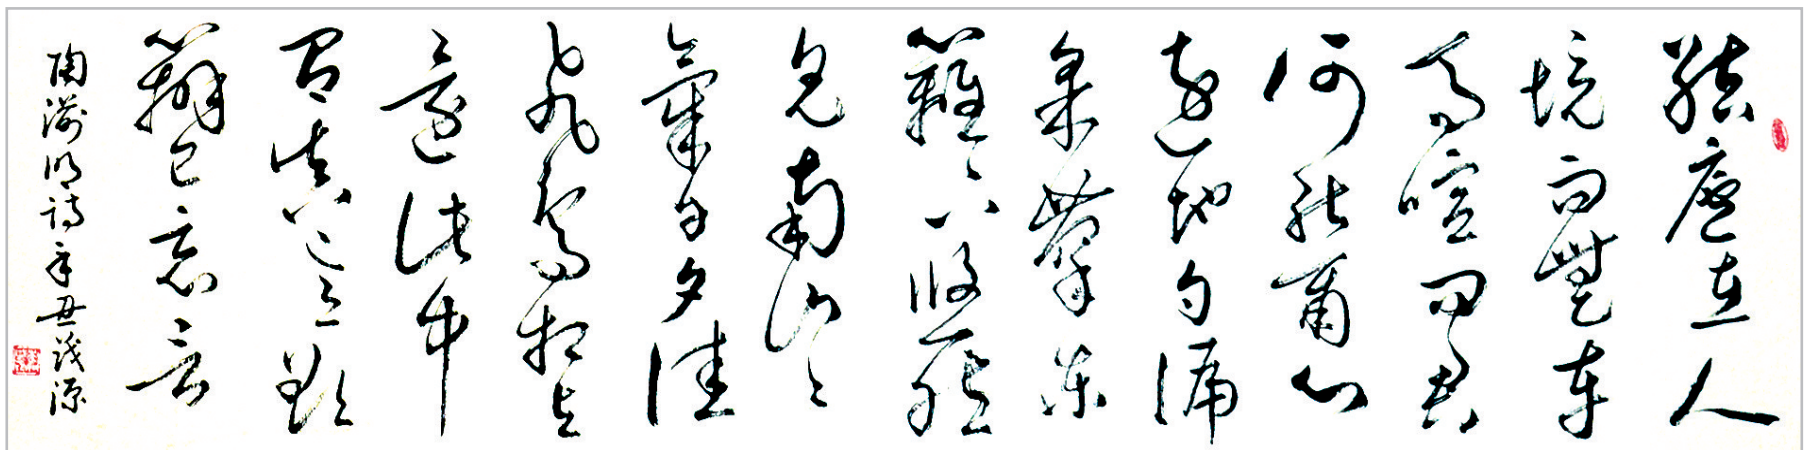 結廬在人
境而無車
馬喧問君
何能爾心
遠地自偏
采菊東
籬下悠然
見南山山
氣日夕佳
飛鳥相与
還此中
有真意欲
辯已忘言
陶淵明詩辛丑茂源